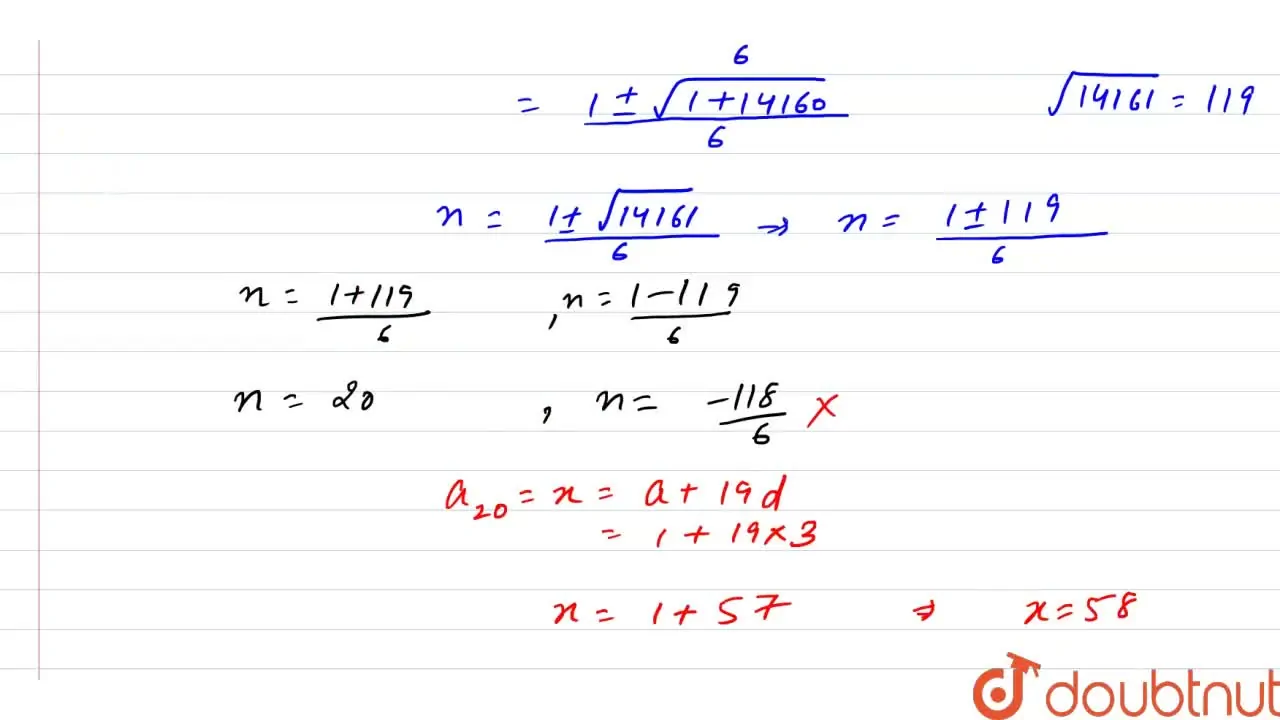 6
= (1 ± √(1 + 14160))/6 √14161 = 119
n = (1 ± √14161)/6 ⇒ n = (1 ± 119)/6
n = (1 + 119)/6 , n = (1 - 119)/6
n = 20 , n = -118/6 ×
a₂₀ = x = a + 19d
= 1 + 19 × 3
x = 1 + 57 ⇒ x = 58
doubtnut